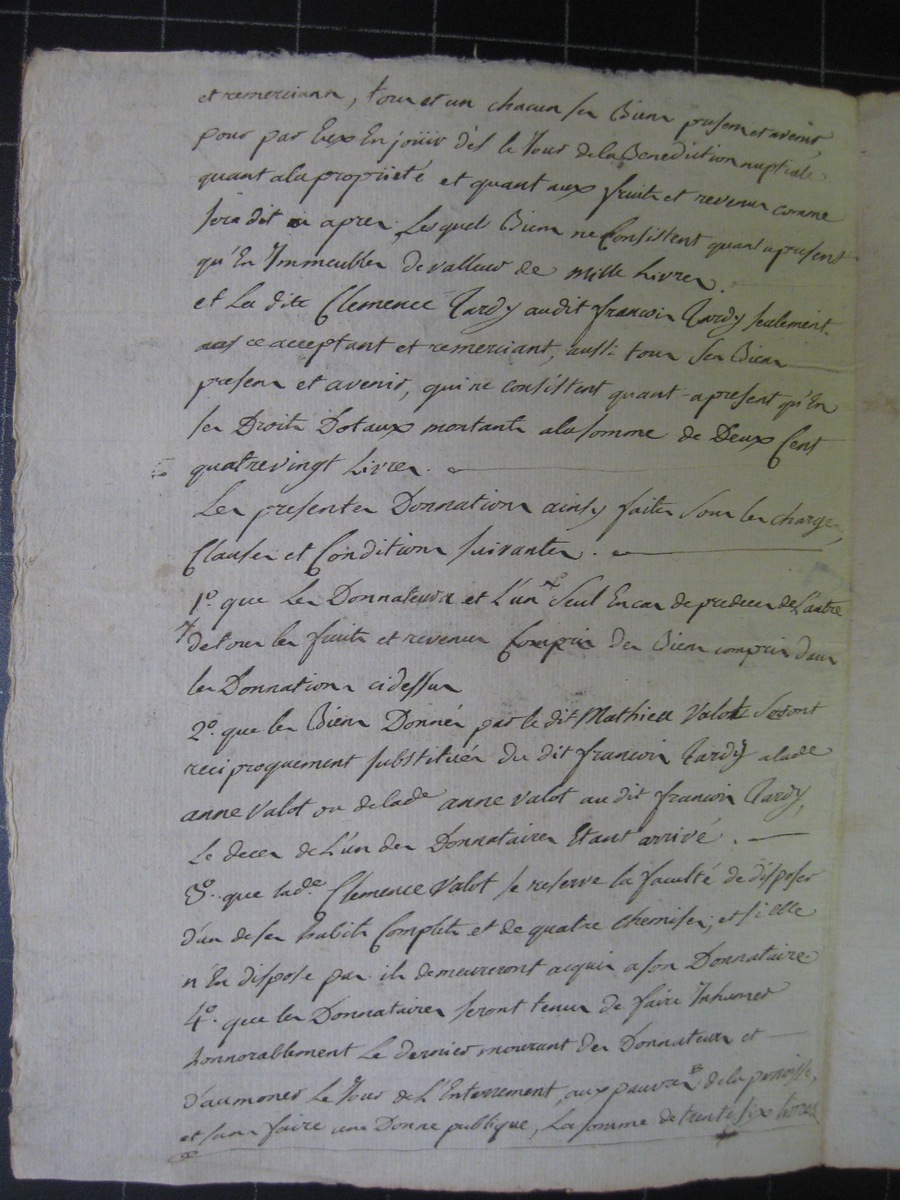 et remerciant, tous et un chacun ses Biens presens et avenir,
pour par Eux En joüir dès le Jour de la Benediction nuptiale
quant a la proprieté et quant aux fruits et revenus comme
sera dit ci apres. Lesquels Biens ne Consistent quant a present
qu'En Immeubles de valleur de mille Livres.
et La ditte Clemence Tardy audit francois Tardy seulement
ce acceptant et remerciant, aussi tous Ses Biens
presens et avenir, qui ne consistent quant a present qu'En
ses Droits Dotaux montants a la somme de Deux Cent
quatrevingt Livres.
Les presentes Donnations ainsy faites Sous les charges,
Clauses et Conditions suivantes.
1º. que Les Donnateurs et L'un Seul En cas de predeces de L'autre
de tous les fruits et revenus Compris des Biens compris dans
les Donnations cidessus
2º. que les Biens Donnés par le dit Mathieu Valot Seront
reciproquement substitués du dit francois Tardy a lade
anne Valot ou de lade anne valot au dit francois Tardy,
Le deces de L'un des Donnataires Etant arrivé.
3º. que lade. Clemence Valot se reserve la faculté de disposer
d'un de ses habits Complets et de quatre chemises; et si elle
n'En dispose pas ils demeureront acquis a son Donnataire
4º. que les Donnataires seront tenus de faire Inhumer
honnorablement Le dernier mourant des Donnateurs et
d'aumoner Le Jour de L'Enterrement, aux pauvres de la paroisse,
et sans faire une Donne publique, La somme de trente six livres